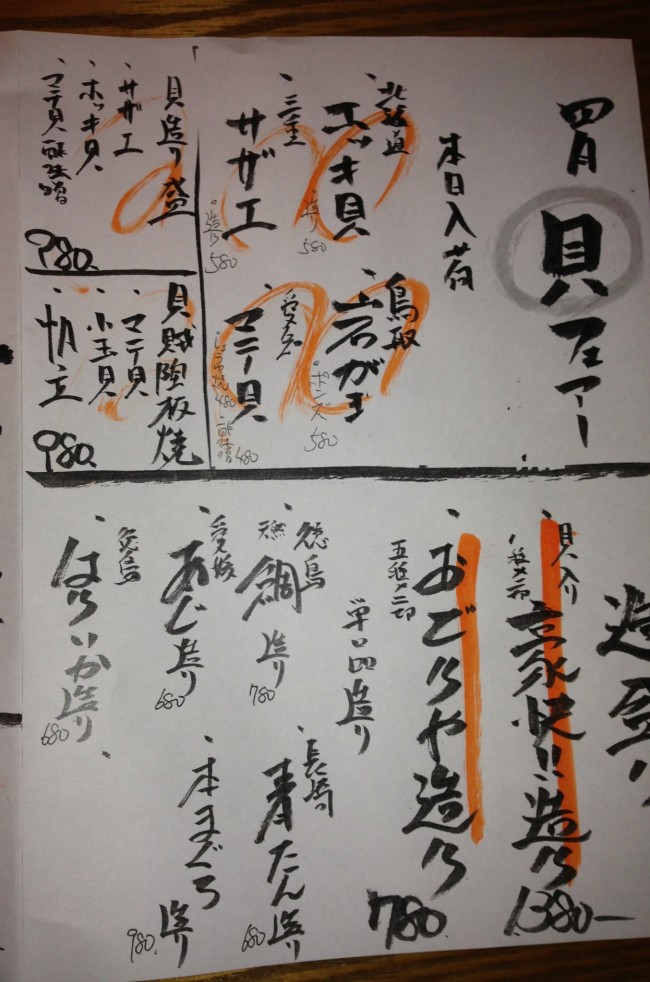 四月 貝フェアー
本日入荷
北海道
ホッキ貝
造り 580
三重
サザエ
造り 580
鳥取
岩がき
ポンズ 580
愛知
マテ貝
しょうゆ焼 480
酢味噌 480
貝造り盛
サザエ
ホッキ貝
マテ貝酢味噌
980.
貝賊陶板焼
マテ貝
小玉貝
帆立
980.
造盛り
貝入り
豪快!!造り
1380-
おごりや造り
五種〆二切
780.
単品造り
徳島
天然 鯛造り
780
長崎
赤たん造り
680
愛媛
あじ造り
680
本まぐろ造り
980.
はりいか造り
680